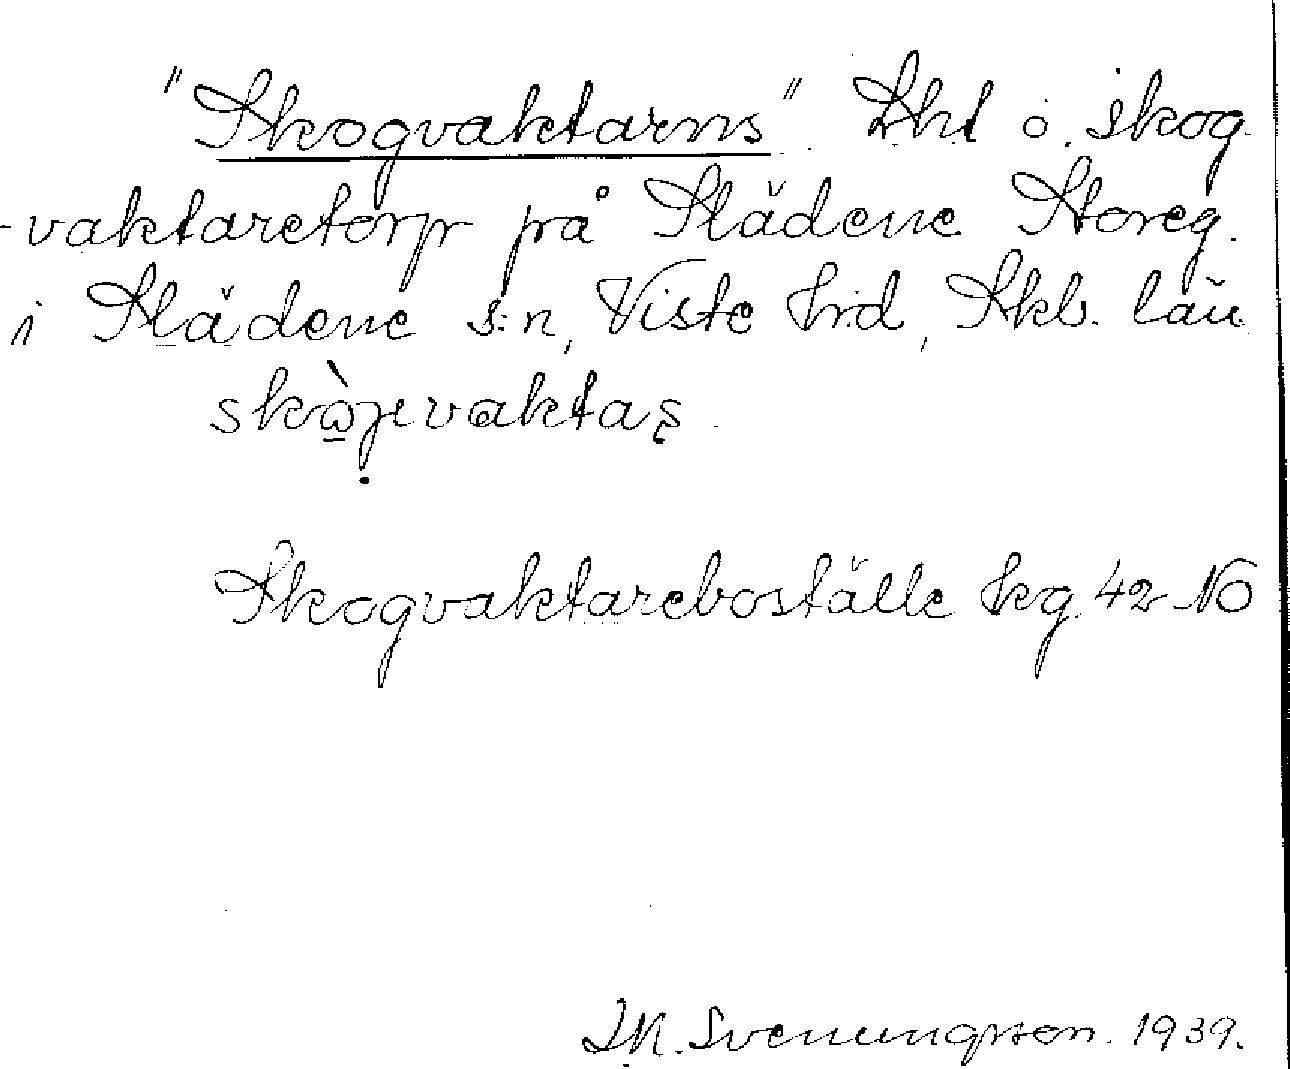 "Skogvaktarns". Lht o. skog
-vaktaretorp på Slädene Storeg.
i Slädene s:n, Viste hrd, Skb. län
skὼjevaktaş
Skogvaktareboställe kg. 42 NO
Svenungsson. 1939.